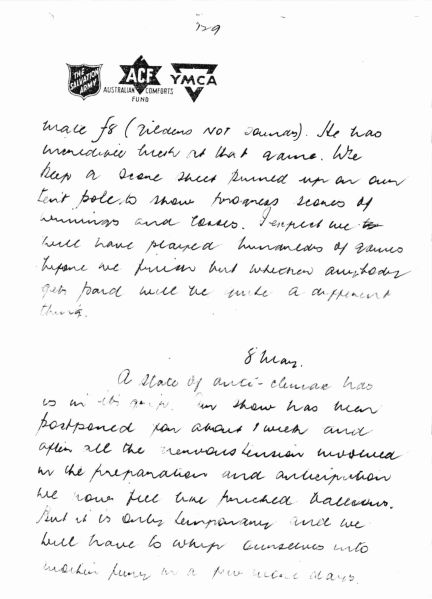 129
THE SALVATION ARMY
ACF
AUSTRALIAN COMFORTS FUND
YMCA
made f8 (Gilders NOT pounds). He has
incredible luck at that game. We
keep a score sheet pinned up on our
tent pole to show progress scores of
winnings and losses. I expect we
will have played hundreds of games
before we finish but whether anybody
gets paid will be quite a different
thing.
8 May.
A state of anti-climax has
us in its grip. Our show has been
postponed for about 1 week and
after all the nervous tension involved
in the preparation and anticipation
we now feel like pricked balloons.
But it is only temporary and we
will have to whip ourselves into
fury in a few more days.